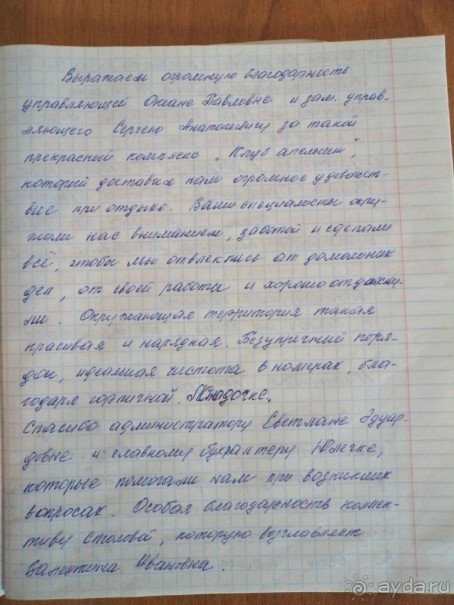 Выражаем огромную благодарность
управляющей Оксане Павловне и зам. управ-
ляющего Сергею Анатольевичу за такой
прекрасный комплекс "Клуб апельсин",
который доставил нам огромное удовольст-
вие при отдыхе. Ваши специалисты окру-
жили нас вниманием, заботой и сделали
всё, чтобы мы отвлеклись от домашних
дел, от своей работы и хорошо отдохну-
ли. Окружающая территория такая
красивая и нарядная. Безупречный поря-
док, идеальная чистота в номерах, бла-
годаря горничной
Спасибо администратору Светлане Эдуар-
довне и главному бухгалтеру Юлечке,
которые помогали нам при возникших
вопросах. Особая благодарность коллек-
тиву столовой, которую возглавляет
Валентина Ивановна.
ayda.ru